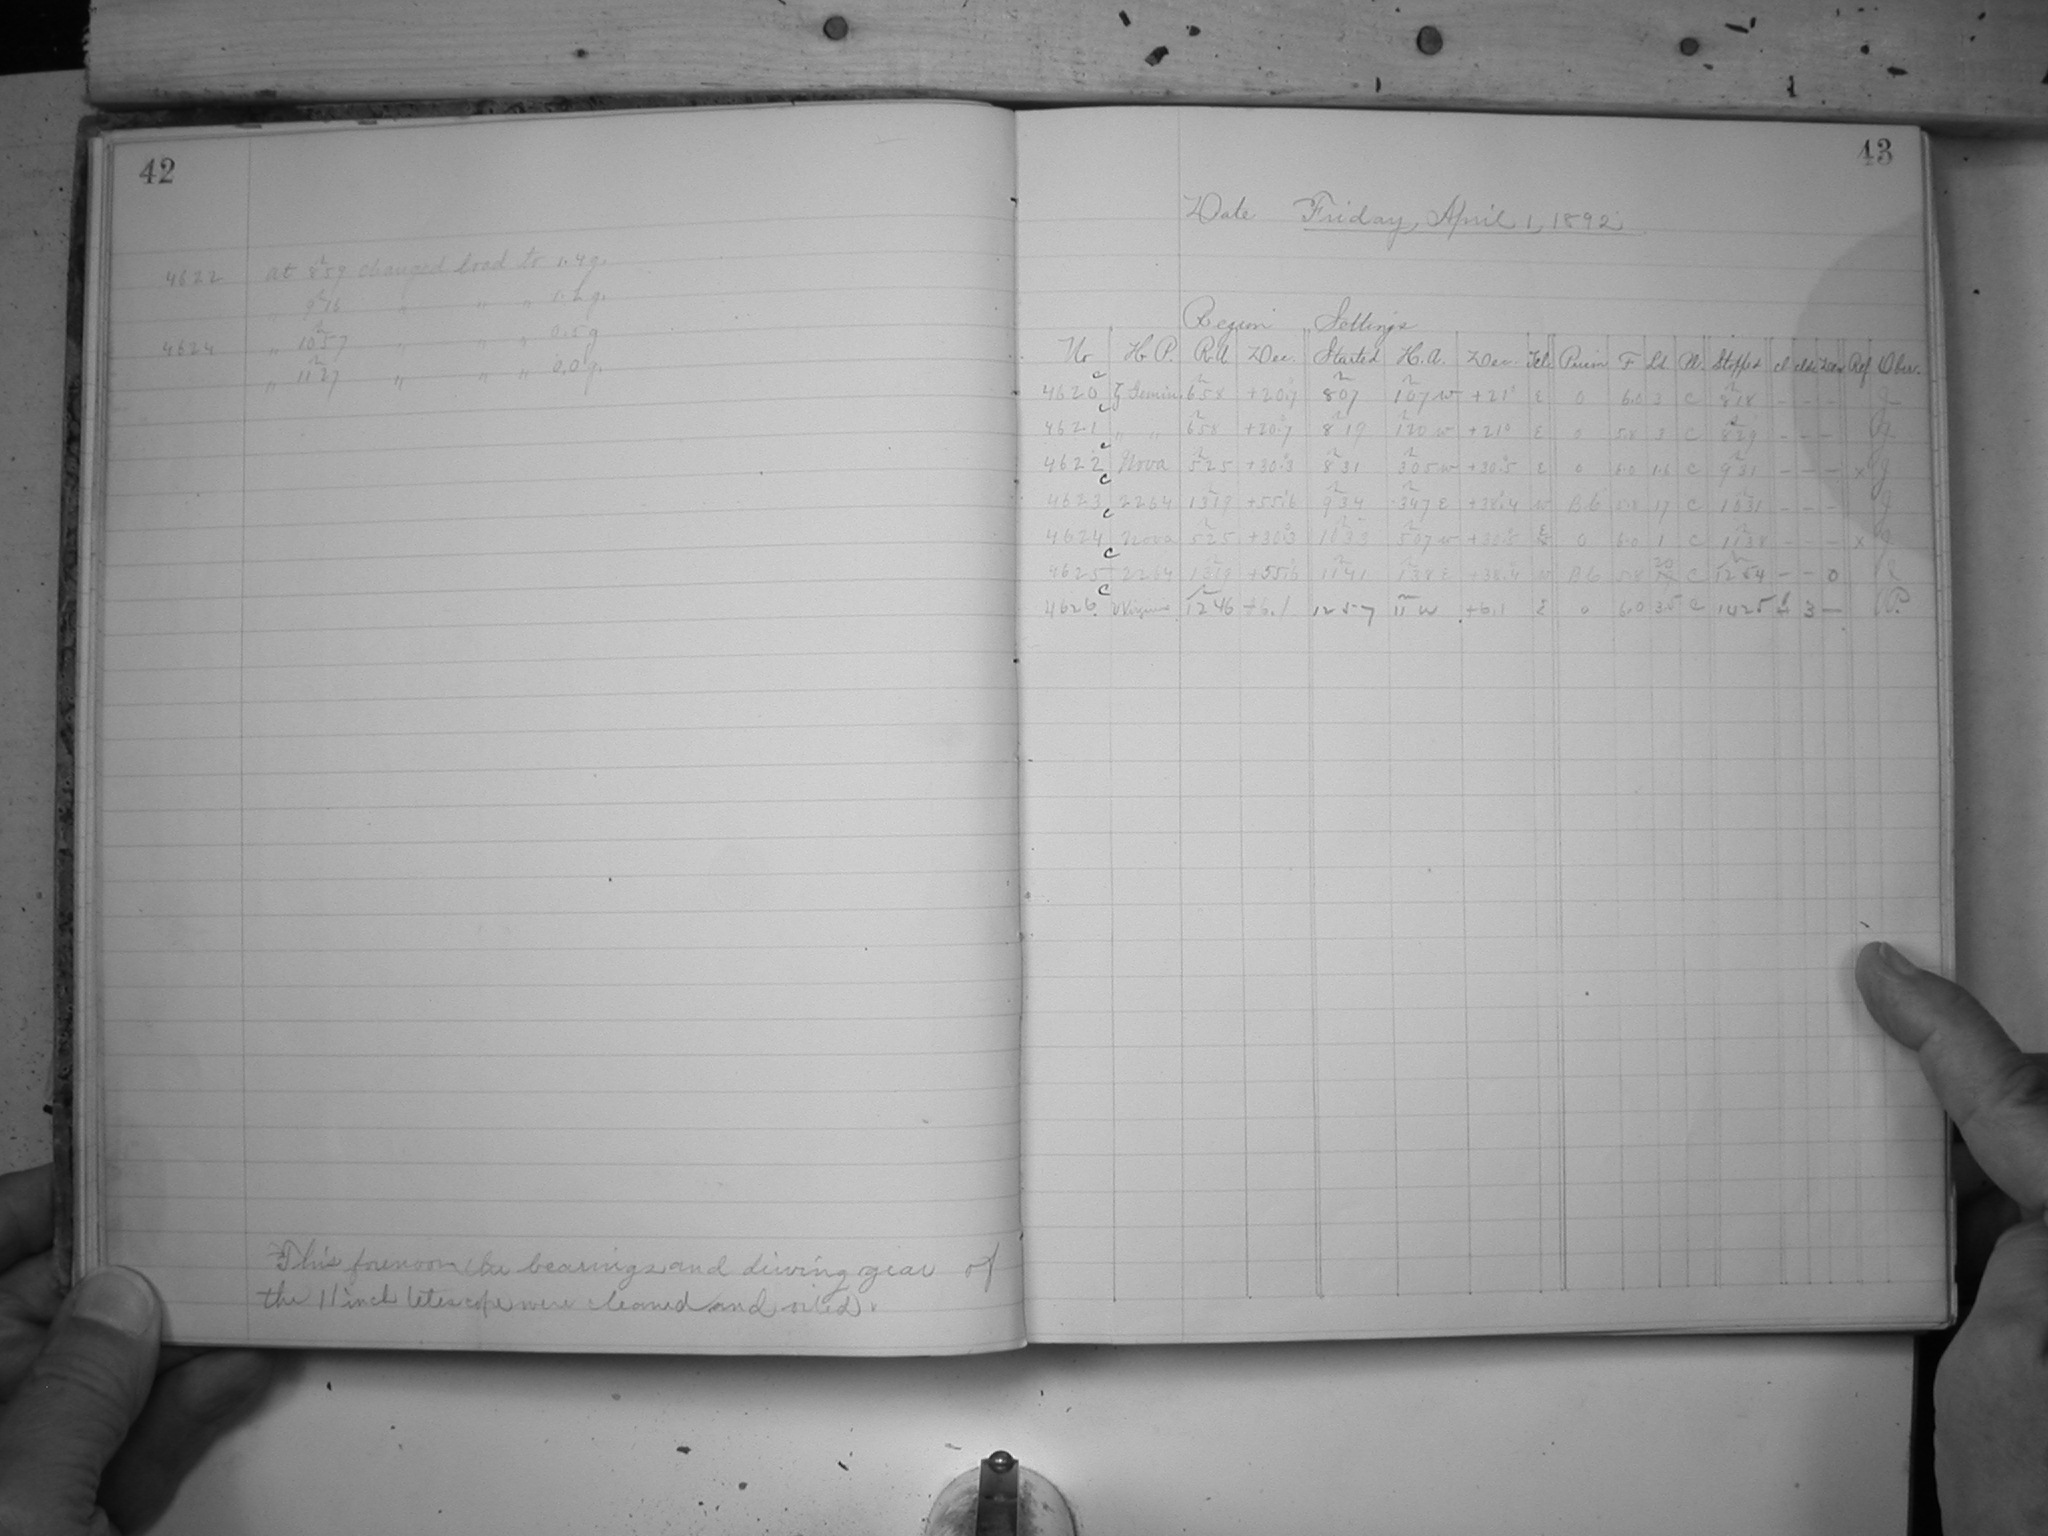 42
4622 at 8 59 changed load to 1.4 g.
" 9 16 " " " 1.2 g.
4624 " 10 57 " " " 0.5 g
" 11 27 " " " 0.0 g.
This forenoon the bearings and driving gear of
the 11 inch telescope were cleaned and oiled.
43
Date Friday, April 1, 1892
Region Settings
No H. P. R.A Dec. Started H.A. Dec. Tel. Prism F Ld. Pl. Stopped cl Ref Obsr.
4620 c ζ Gemin. 6 58 +20.7 8 07 1 07 w +21° E 0 6.0 3 C 8 18 - - -
4621 c " " 6 58 +20.7 8 19 1 20 w +21° E 0 5.8 3 C 8 29 - - -
4622 c Nova 5 25 +30.3 8 31 3 05 w +30.5 E 0 6.0 1.6 C 9 31 - - - x
4623 c 2264 13 19 +55.6 9 34 3 47 E +38.4 w 5.8 17 C 10 31 - - -
4624 c Nova 5 25 +30.3 10 33 5 07 w +30.5 E 0 6.0 1 C 11 38 - - - x
4625 c 2264 13 19 +55.6 11 41 1 38 E +38.4 w 5.8 20 C 12 54 - - 0
4626 c Virginis 12 46 +6.1 12 57 11 w +6.1 E 0 6.0 35 C 14 25 3 - P.